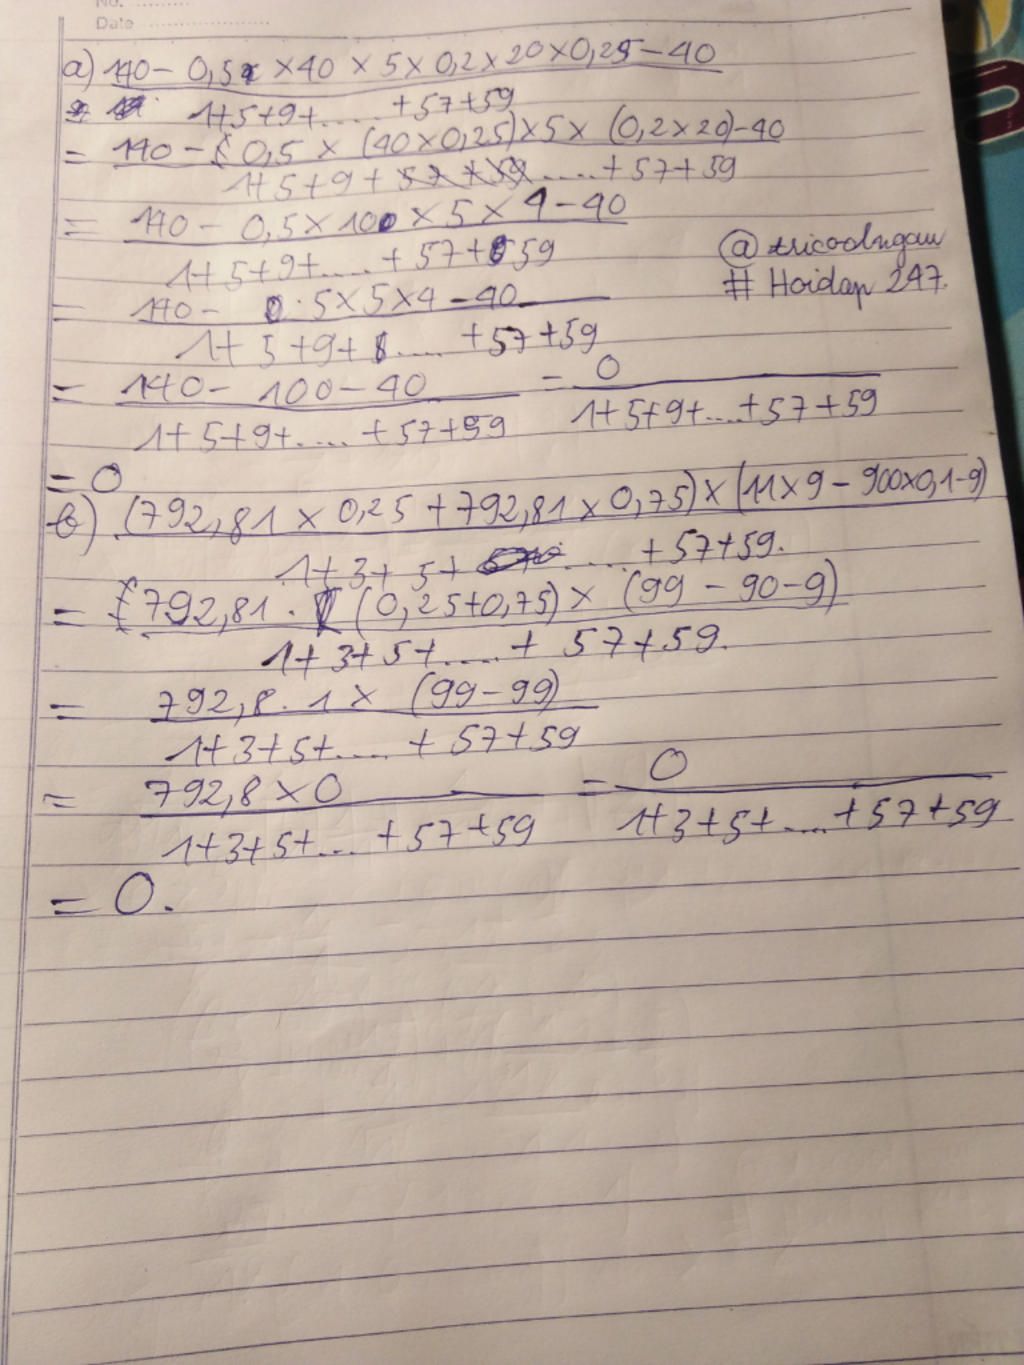 No. ............
Date ..................
a) 140 - 0,5 × 40 × 5 × 0,2 × 20 × 0,25 - 40
1 + 5 + 9 + ...... + 57 + 59
= 140 - 0,5 × (40 × 0,25) × 5 × (0,2 × 20) - 40
1 + 5 + 9 + ..... + 57 + 59
= 140 - 0,5 × 10 × 5 × 4 - 40
1 + 5 + 9 + ..... + 57 + 59
@tricodngau
# Hoidap 247.
= 140 - 5 × 5 × 4 - 40
1 + 5 + 9 + ..... + 57 + 59
= 140 - 100 - 40 = 0
1 + 5 + 9 + ..... + 57 + 59 1 + 5 + 9 + .... + 57 + 59
= 0
b) (792,81 × 0,25 + 792,81 × 0,75) × (11 × 9 - 900 × 0,1 - 9)
1 + 3 + 5 + ...... + 57 + 59.
= 792,81 . (0,25 + 0,75) × (99 - 90 - 9)
1 + 3 + 5 + ..... + 57 + 59.
= 792,8 . 1 × (99 - 99)
1 + 3 + 5 + ..... + 57 + 59
= 792,8 × 0 = 0
1 + 3 + 5 + .... + 57 + 59 1 + 3 + 5 + ..... + 57 + 59
= 0.